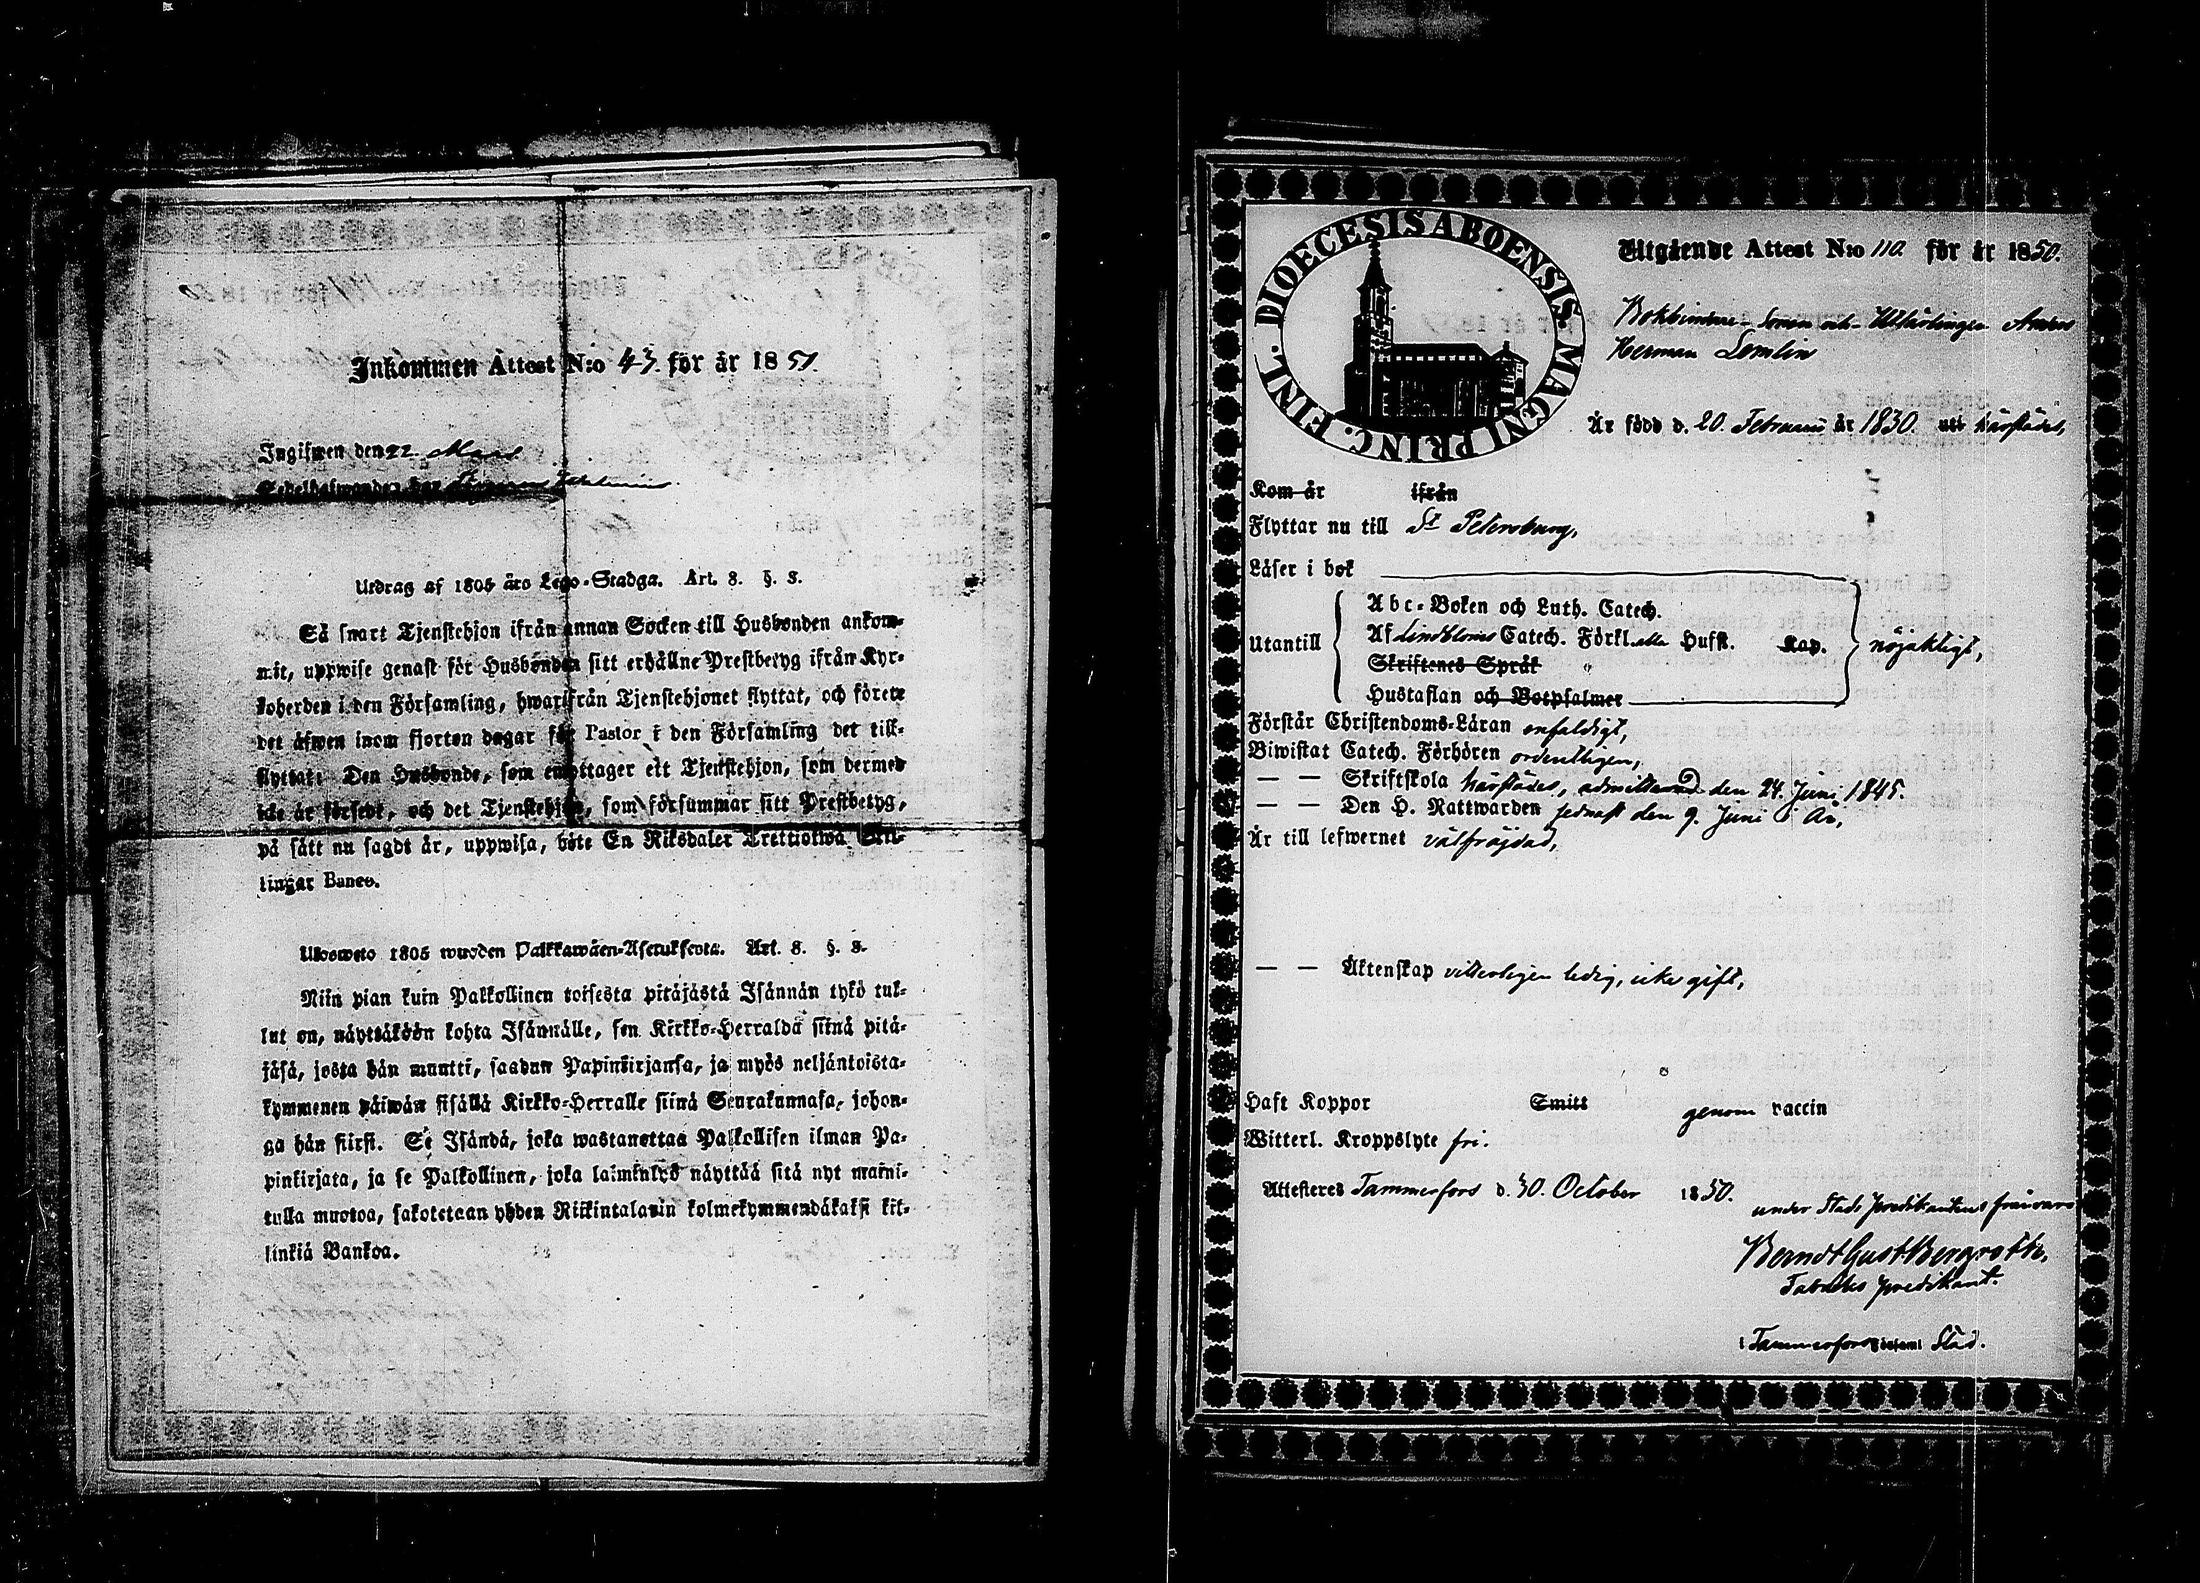 Inkommen Attest N:o 43. för år 1851.
Ingifwen den 22 Mars
Utdrag af 1805 års Lego-Stadga. Art. 8. §. 8.
Så snart Tjenstehjon ifrån annan Socken till Husbonden ankom-
mit, uppwise genast för Husbonden sitt erhållne Prestbetyg ifrån Kyr-
koherden i den Församling, hwarifrån Tjenstehjonet flyttat, och förete
det äfwen inom fjorton dagar för Pastor i den Församling det till-
flyttat: Den Husbonde, som emottager ett Tjenstehjon, som dermed
icke är försedt, och det Tjenstehjon, som försummar sitt Prestbetyg,
på sätt nu sagdt är, uppwisa, böte En Riksdaler Trettiotwå Skil-
lingar Banco.
Ulosweto 1805 wuoden Palkkawäen-Asetuksesta. Art. 8. §. 8.
Niin pian kuin Palkollinen toisesta pitäjästä Isännän tykö tul-
lut on, näyttäköön kohta Isännälle, sen Kirkko-Herralda siinä pitä-
jäsä, josta hän muutti, saadun Papinkirjansa, ja myös neljäntoista-
kymmenen päiwän sisällä Kirkko-Herralle siinä Seurakunnasa, johon-
ga hän siirsi. Se Isändä, joka wastanottaa Palkollisen ilman Pa-
pinkirjata, ja se Palkollinen, joka laiminlyö näyttää sitä nyt maini-
tulla muotoa, sakotetaan yhden Riikintalarin kolmekymmendäkaksi kil-
linkiä Bankoa.
DIOECESIS ABOENSIS. MAGNI PRINC. FINL.
Utgående Attest N:o 110. för år 1850.
Bokbindare-Sonen och Utlärlingen Anders
Herman Lemlin
Är född d. 20. Februarii år 1830. uti härstädes,
Kom år ifrån
Flyttar nu till St Petersburg,
Läser i bok
Abc-Boken och Luth. Catech.
Utantill Af Lindbloms Catech. Förkl. alla Hufst. Kap. nöjaktigt,
Skriftenes Språk
Hustaflan och Botpsalmer
Förstår Christendoms-Läran enfaldigt,
Biwistat Catech. Förhören ordentligen,
— — Skriftskola härstädes, admitterad den 24. Juni 1845.
— — Den H. Nattwarden sednast den 9. Juni i År,
Är till lefwernet välfräjdad,
— — Äktenskap vitterligen ledig, icke gift,
Haft Koppor Smitt genom vaccin
Witterl. Kroppslyte fri.
Attesteres Tammerfors d. 30. October 1850.
under Stads predikantens frånvaro
Berndt Gust Bergroth,
Fabriks predikant.
i Tammerfors Stad.